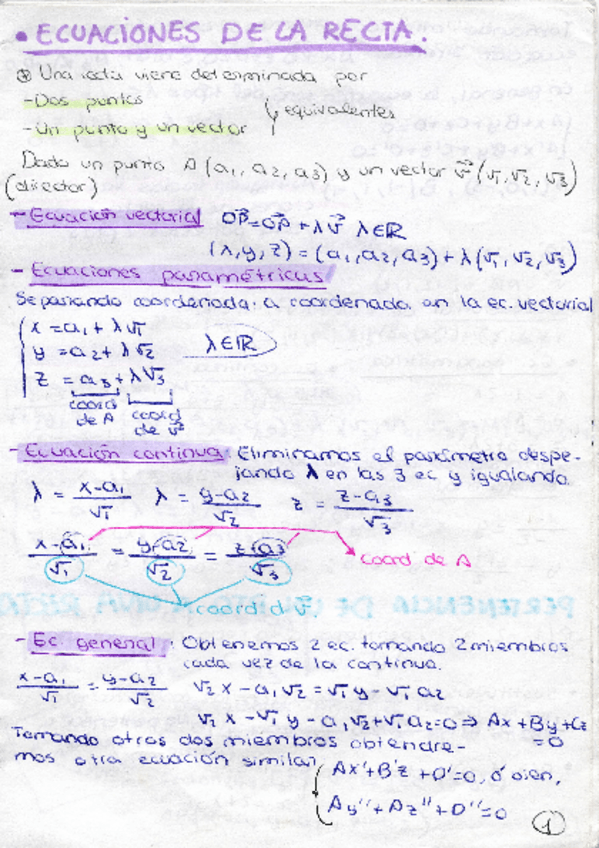 • ECUACIONES DE LA RECTA.
⊛ Una recta viene determinada por
- Dos puntos
equivalentes
- Un punto y un vector
Dado un punto A (a₁, a₂, a₃) y un vector v⃗ (v₁, v₂, v₃)
(director)
- Ecuación vectorial OP⃗ = OP⃗ + λv⃗ λ∈ℝ
(x, y, z) = (a₁, a₂, a₃) + λ(v₁, v₂, v₃)
- Ecuaciones paramétricas
Separando coordenada a coordenada en la ec. vectorial
x = a₁ + λv₁
y = a₂ + λv₂ λ∈ℝ
z = a₃ + λv₃
coord de A coord de v⃗
- Ecuación continua: Eliminamos el parámetro despe-
jando λ en las 3 ec y igualando.
λ = (x-a₁)/v₁ λ = (y-a₂)/v₂ z = (z-a₃)/v₃
(x-a₁)/v₁ = (y-a₂)/v₂ = (z-a₃)/v₃ coord de A
coord d v⃗.
- Ec. general: Obtenemos 2 ec. tomando 2 miembros
cada vez de la continua.
(x-a₁)/v₁ = (y-a₂)/v₂ v₂x - a₁v₂ = v₁y - v₁a₂
v₂x - v₁y - a₁v₂ + v₁a₂ = 0 ⇒ Ax + By + Cz = 0
Tomando otros dos miembros obtendre-
mos otra ecuación similar
Ax' + B'z + D' = 0, ó bien,
Ay'' + Az'' + D'' = 0
1